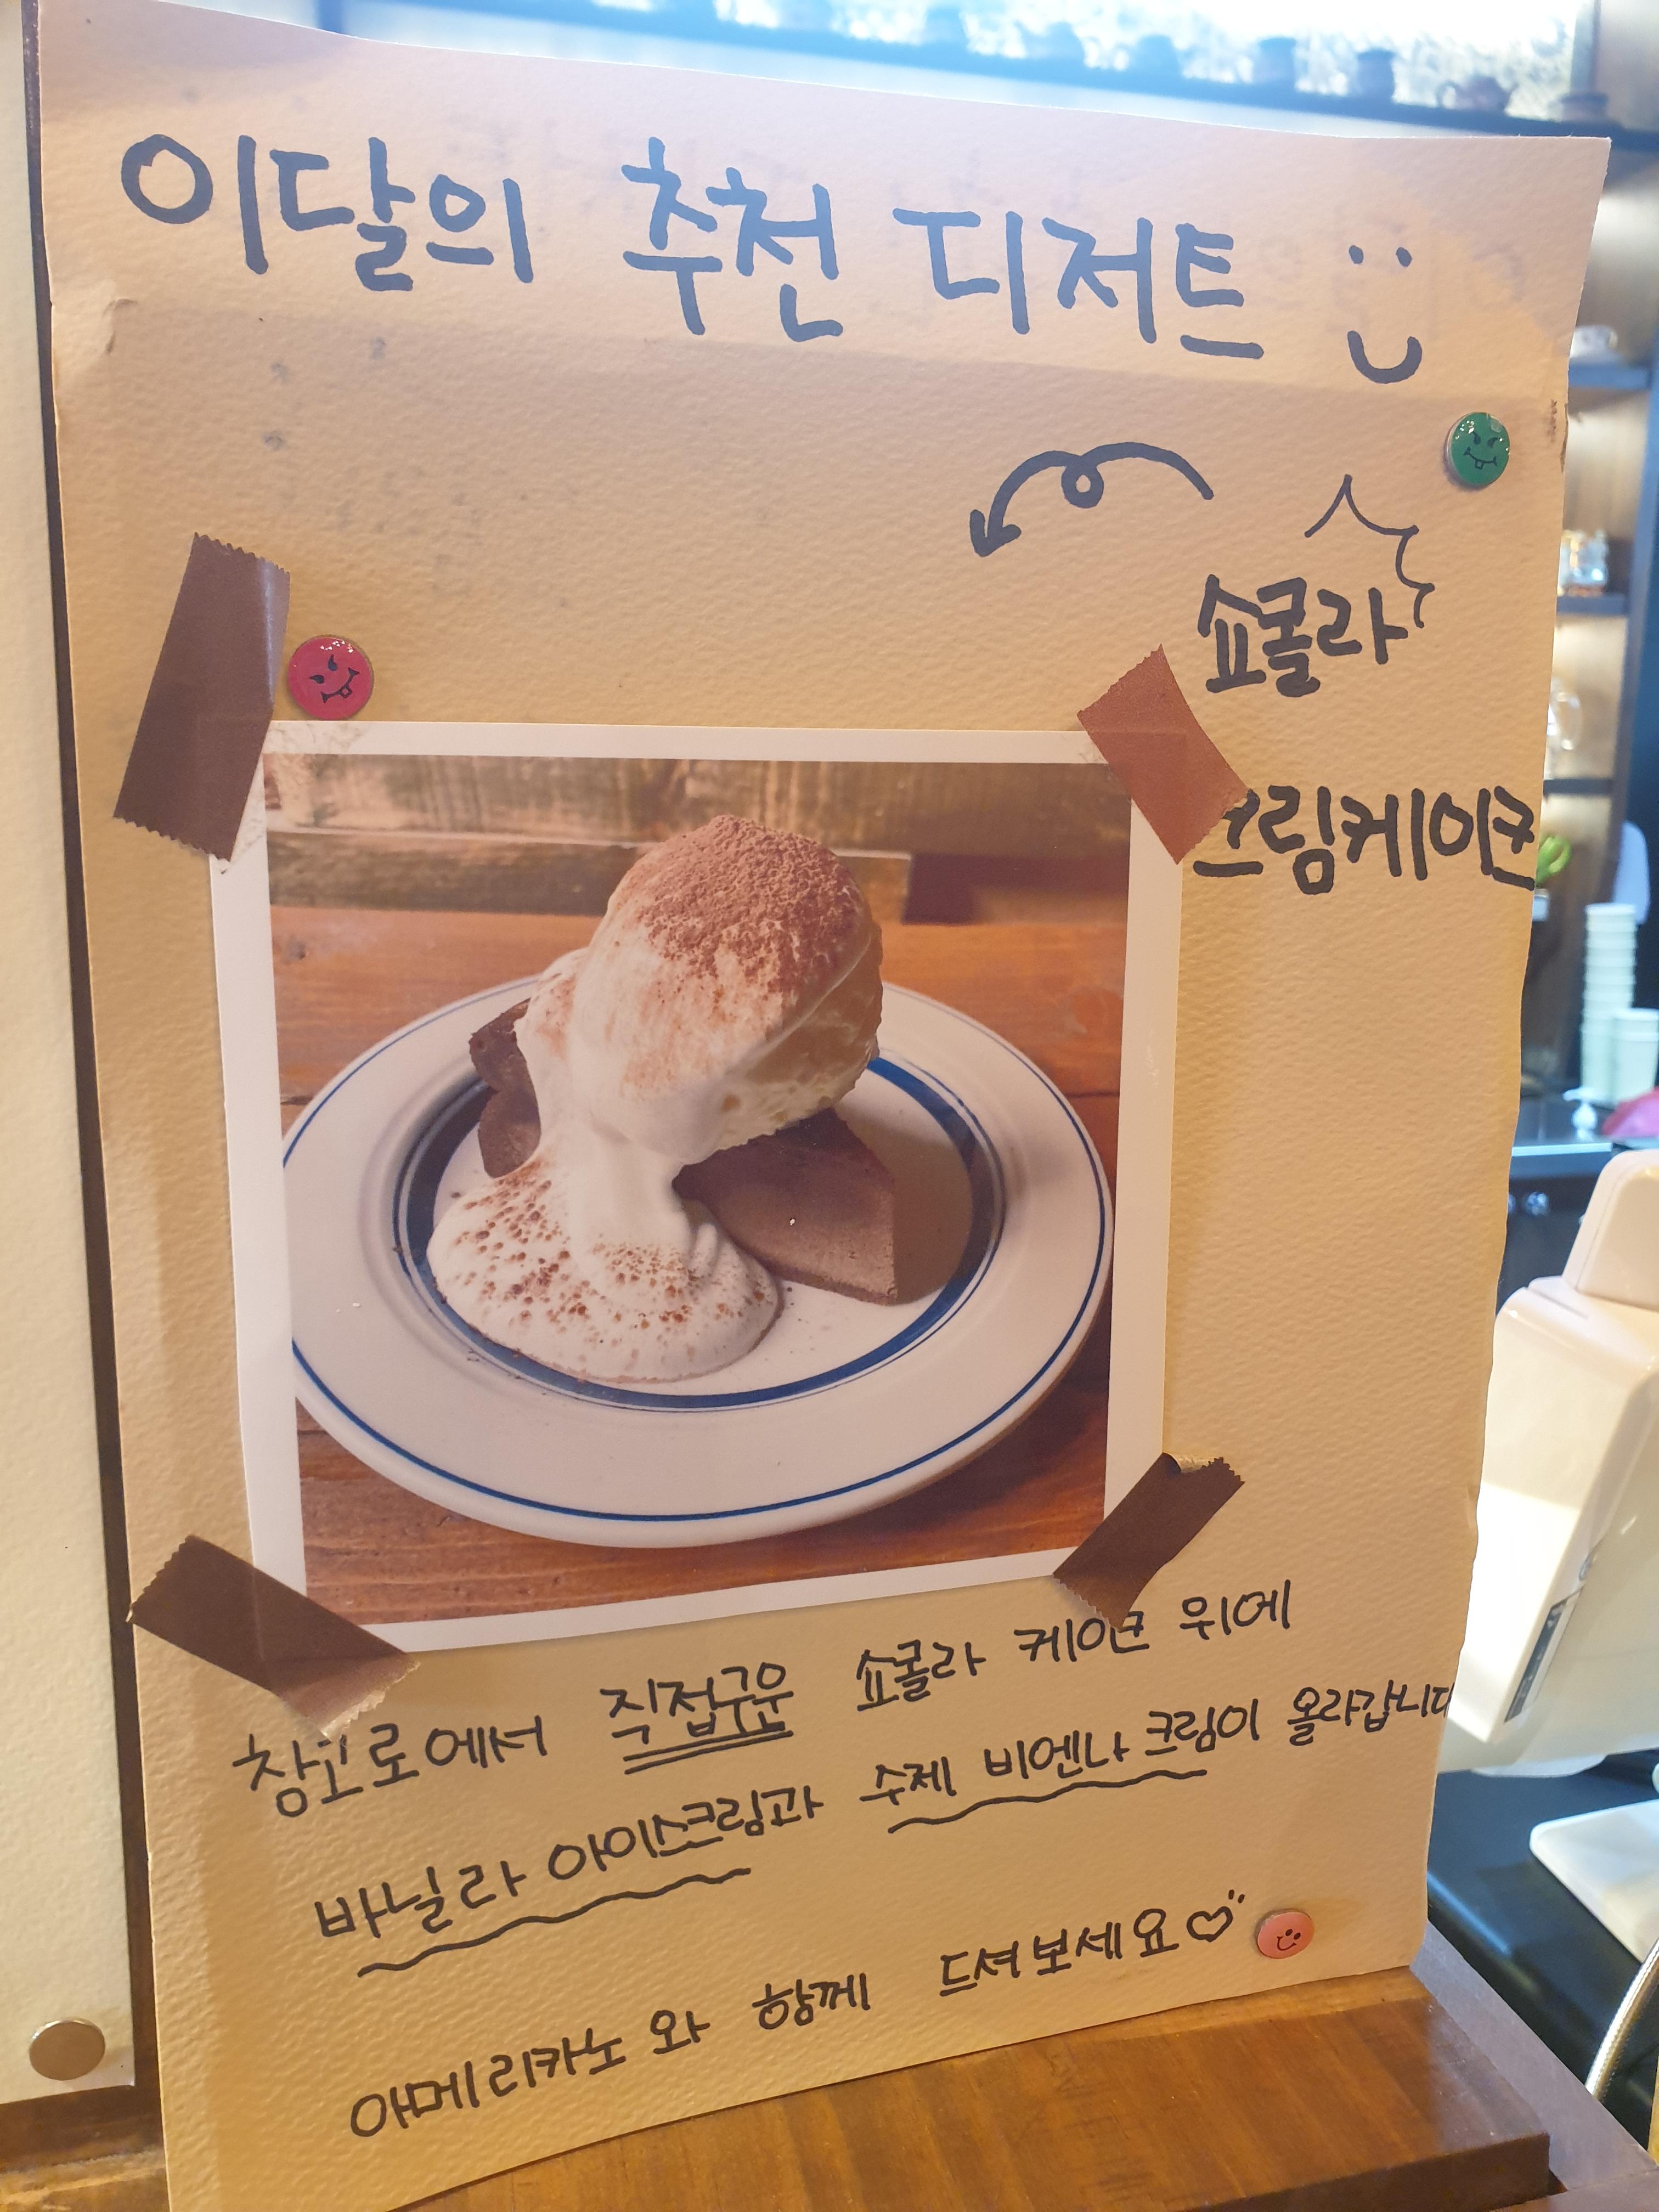 이달의 추천 디저트
쇼콜라
크림케이크
창고로에서 직접구운 쇼콜라 케이크 위에
바닐라 아이스크림과 수제 비엔나 크림이 올라갑니다
아메리카노와 함께 드셔보세요